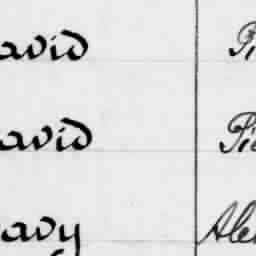 avid Pi
avid Pie
avy Alex